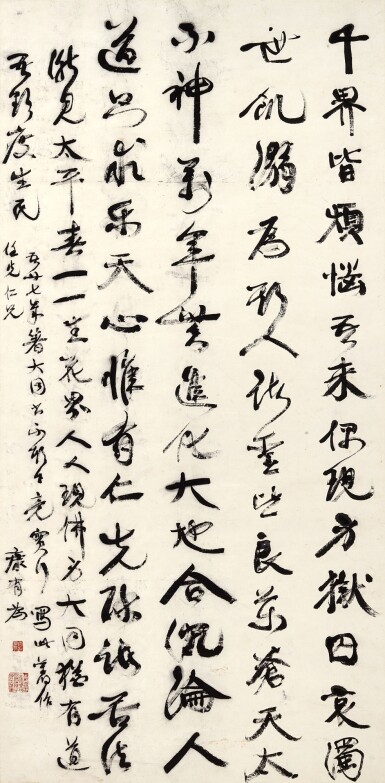 千界皆煩惱吾來偶現身獄囚哀濁
世飢溺為斯人諸聖皆良藥蒼天太
不神萬年無進化大地合沉淪人
道只求樂天心惟有仁先除諸苦法
漸見太平春一一生花界人人現佛身大同猶有道
吾欲度生民
吾廿七年著大同書不料今竟實行寫此
任先仁兄
康有為